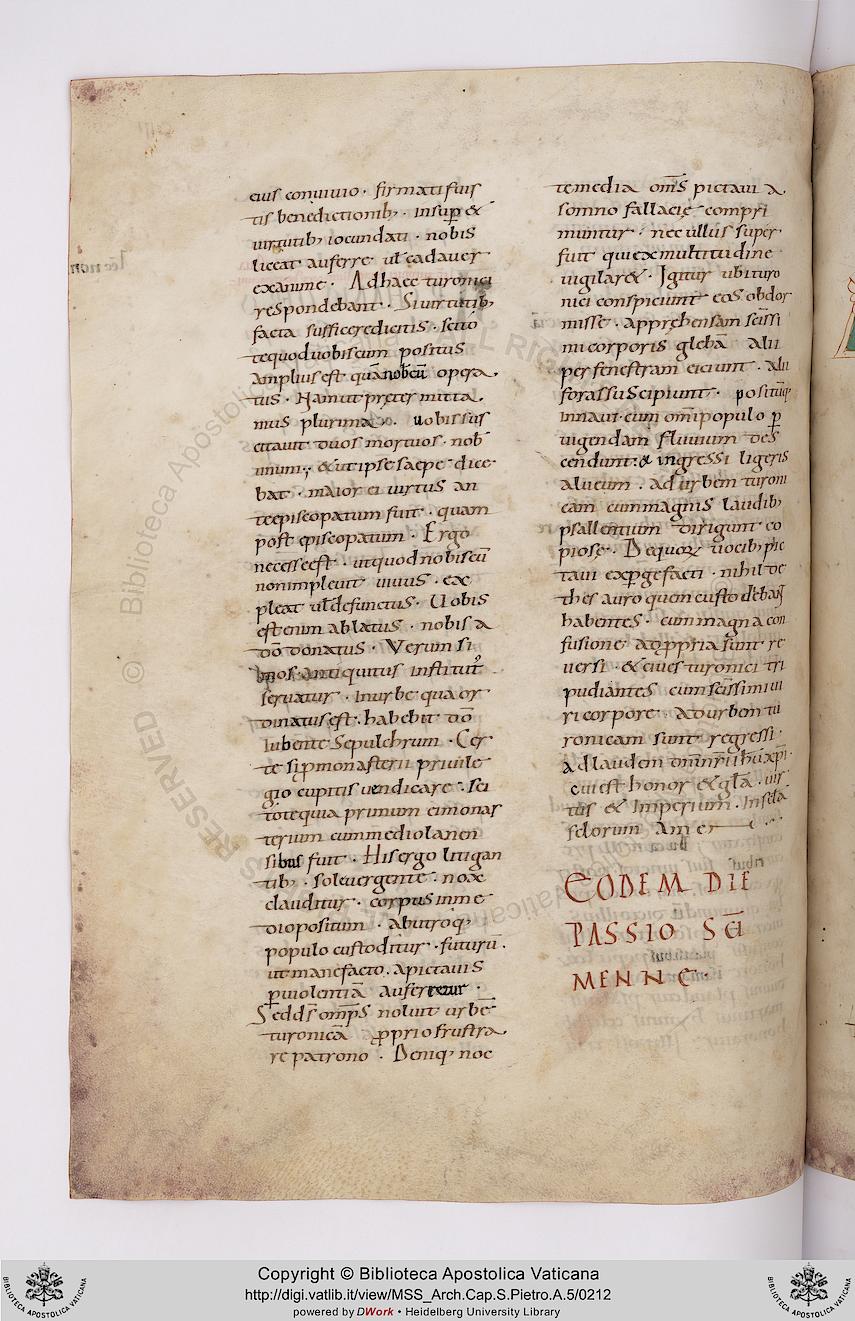 eius conuiuio · firmati fuis
tis benedictionib; · insup &
uirtutib; iocundati · nobis
liceat auferre ul cadauer
exanime · Ad haec turonici
respondebant · Si uirtutib;
facta sufficere dicitis · scito
te quod uobiscum positus
amplius est quā nobcū opera
tus · Nam ut preter mitta
mus plurima · uobis sus
citauit duos mortuos · nob
unum; & ut ipse saepe dice
bat · maior ei uirtus an
te episcopatum fuit · quam
post episcopatum · Ergo
necesse est · ut quod nobiscū
non impleuit uiuus · ex
pleat ul defunctus · Uobis
est enim ablatus · nobis a
dō donatus · Verum si
mos antiquitus institut
seruatur · in urbe qua or
dinatus est · habebit dō
iubente sepulchrum · Cer
te si p monasterii priuile
gio cupitis uendicare · sci
tote quia primum ei monas
terium cum mediolanen
sibus fuit · His ergo litigan
tib; · sole uergente · nox
clauditur · corpus in me
dio positum · ab utroq;
populo custoditur · futurū ·
ut mane facto · a pictauis
p uiolentiā auferretur ·
Sed dś omps noluit urbē
turonicā pprio frustra
re patrono · Deniq; noc
te media oms pictaui a
somno fallacie compri
muntur · nec ullus super
fuit qui ex multitudine
uigilar& · Igitur ubi turo
nici conspiciunt eos obdor
misse · apprehensam scissi
mi corporis glebā alii
per fenestram eiciunt · alii
foras suscipiunt · positūq;
in naui · cum omi populo p
uigendam fluuium des
cendunt · & ingressi ligeris
alueum · ad urbem turoni
cam cum magnis laudib;
psallentium dirigunt co
piose · De quoꝝ uocib; pic
taui expgefacti · nihil de
thesauro quem custodebant
habentes · cum magna con
fusione ad ppria sunt re
uersi · & ciues turonici tri
pudiantes cum scissimi ui
ri corpore · ad urbem tu
ronicam sunt regressi ·
ad laudem dni nri ihu xpi ·
cui est honor & gla · uir
tus & Imperium · In scla
sclorum Amen
EODEM DIE
PASSIO SCI
MENNE ·
Copyright © Biblioteca Apostolica Vaticana
http://digi.vatlib.it/view/MSS_Arch.Cap.S.Pietro.A.5/0212
powered by DWork • Heidelberg University Library